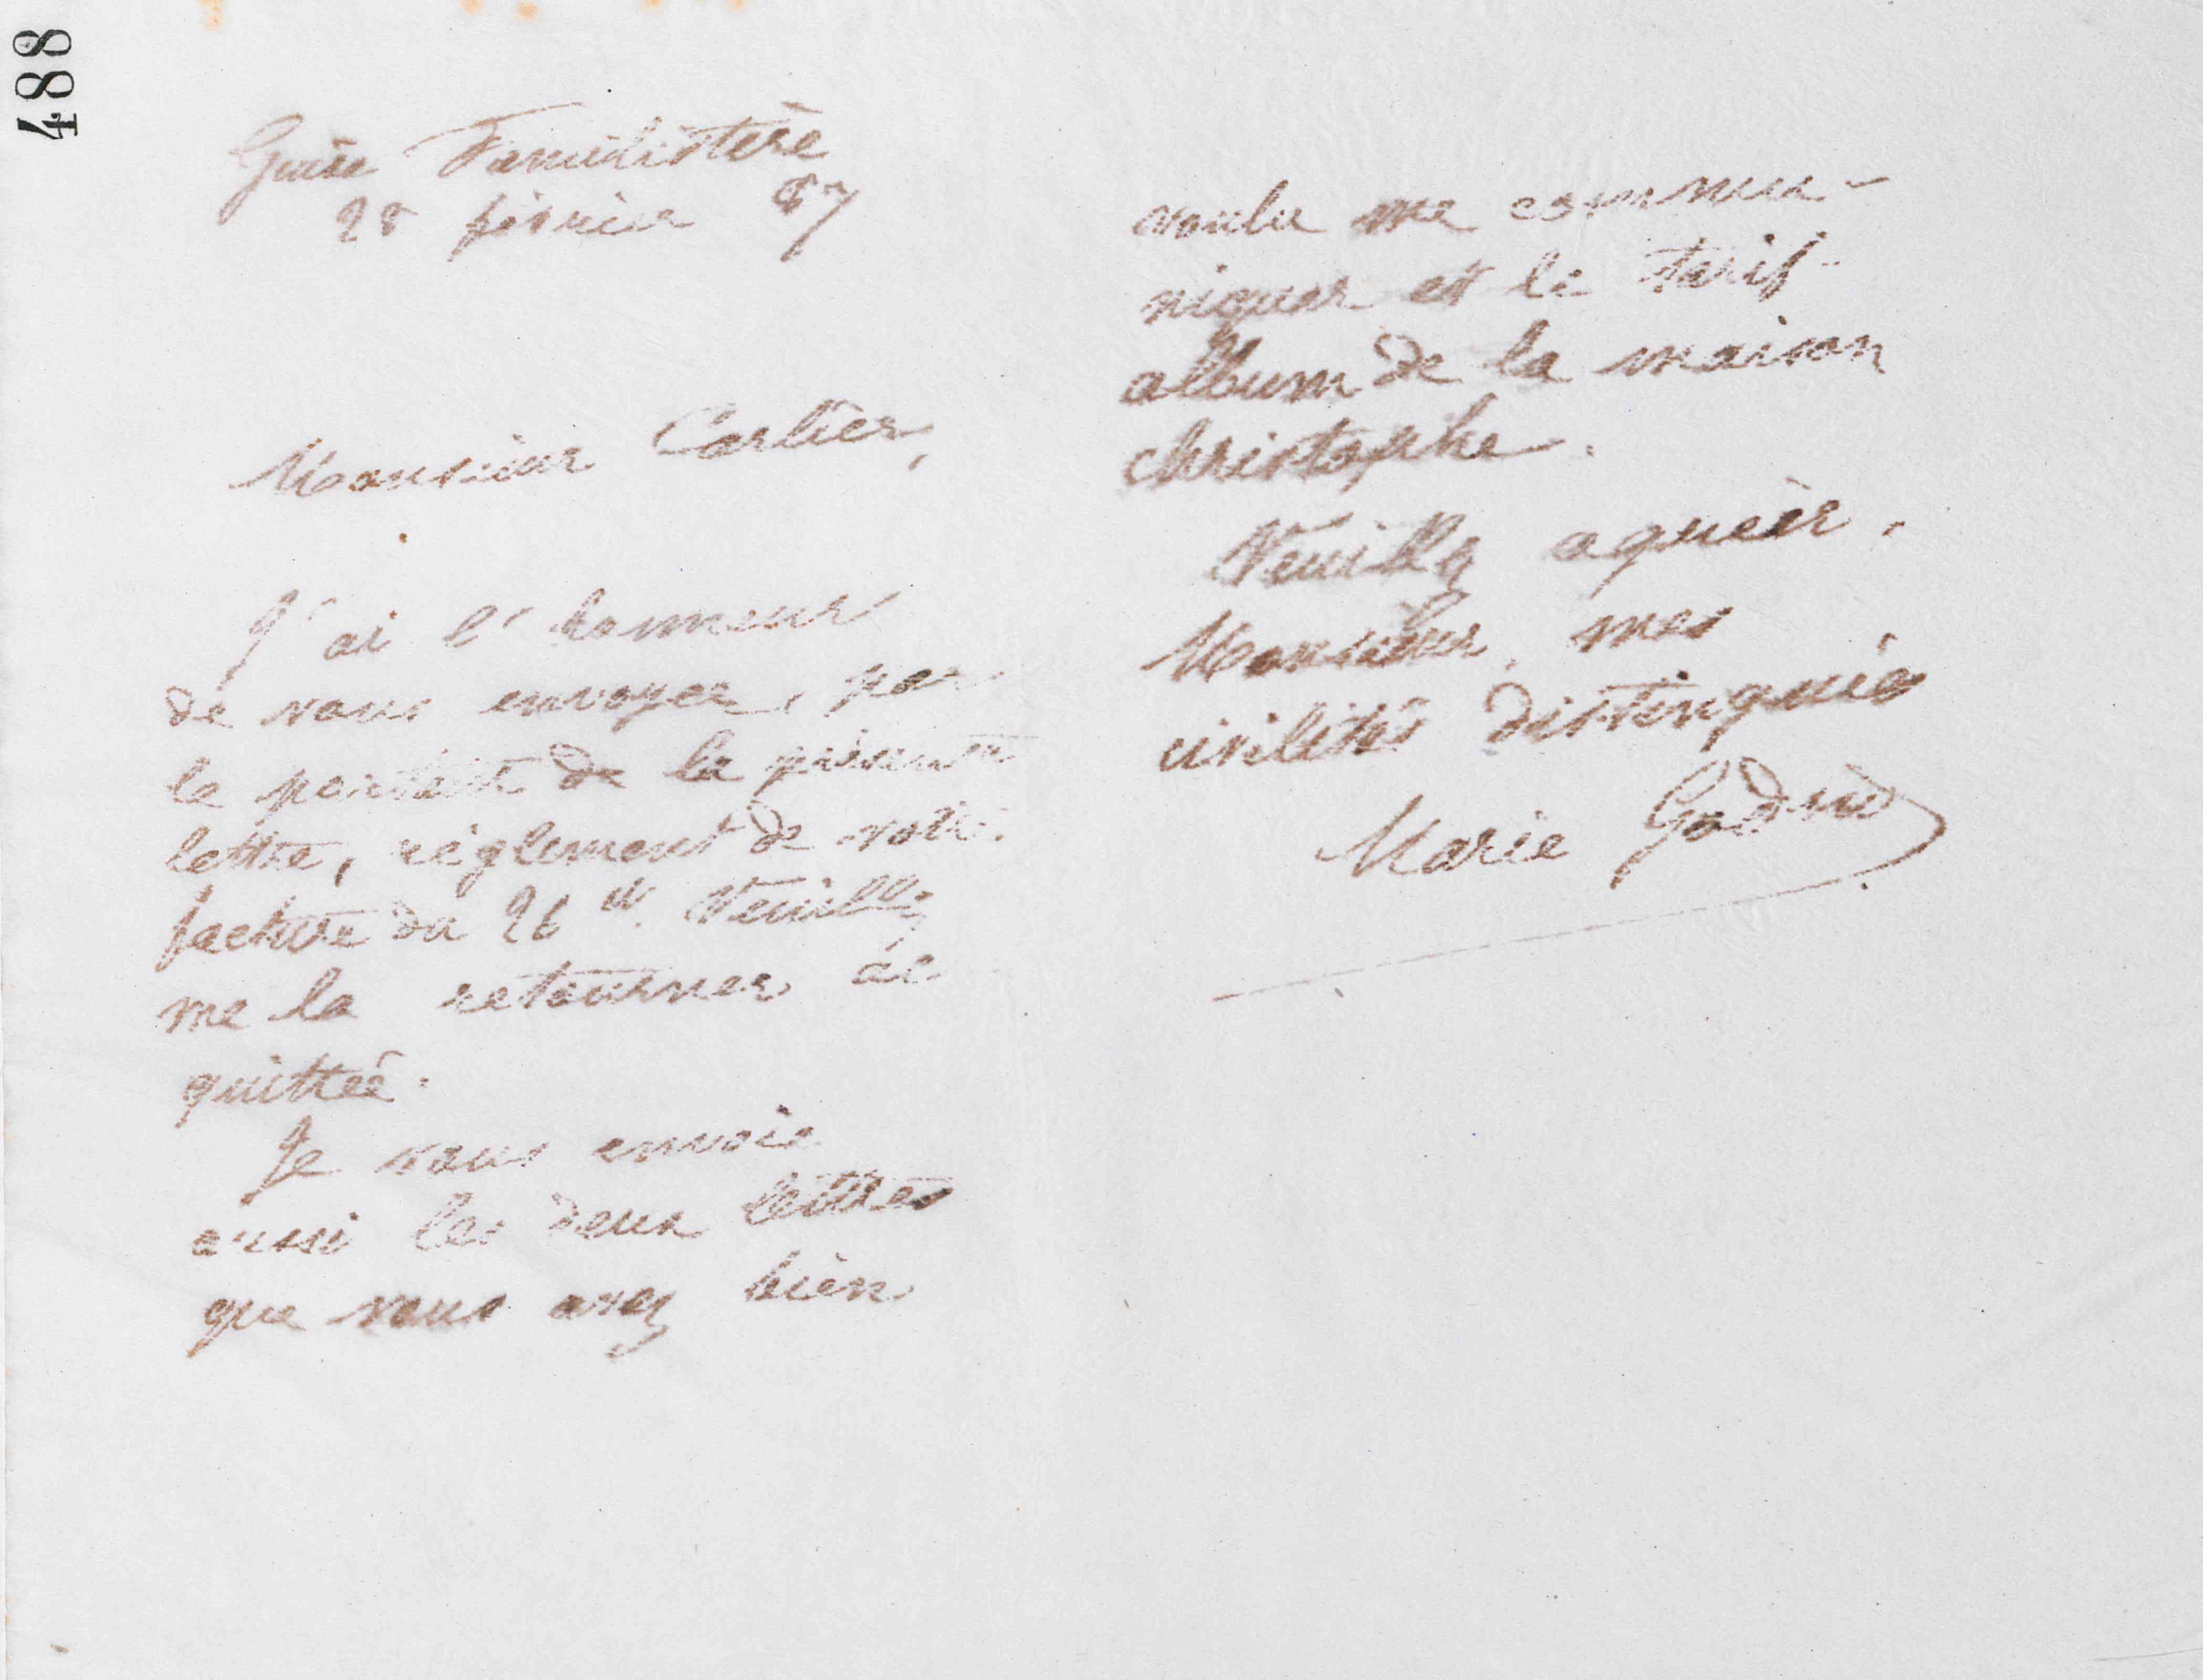 488
Guise Familistère
28 février 87
Monsieur Carlier,
J'ai l'honneur
de vous envoyer, par
le porteur de la présente
lettre, règlement de votre
facture du 26 ct. Veuillez
me la retourner ac
quittée.
Je vous envoie
aussi les deux lettres
que vous avez bien
voulu me commu-
niquer et le tarif-
album de la maison
christophe.
Veuillez agréer,
Monsieur, mes
civilités distinguées
Marie Godin